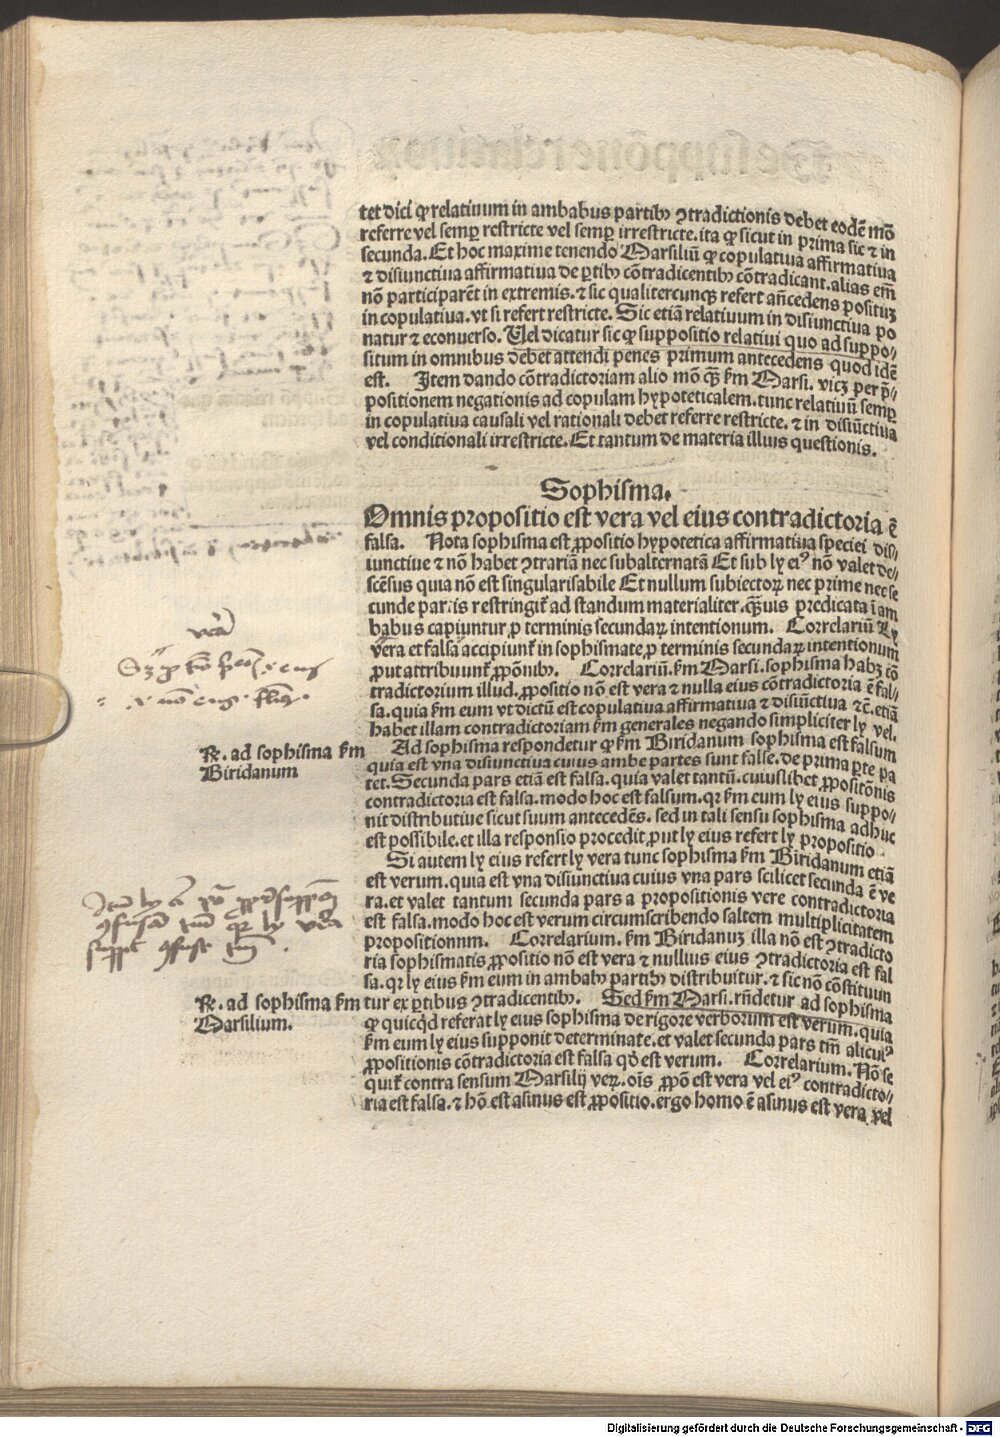 tet dici ꝙ relatiuum in ambabus partibꝫ ꝯtradictionis debet eodẽ mõ
referre vel semꝑ restricte vel semꝑ irrestricte. ita ꝙ sicut in prima sic ⁊ in
secunda. Et hoc maxime tenendo Marsiliũ ꝙ copulatiua affirmatiua
⁊ disiunctiua affirmatiua de ꝑtibꝫ cõtradicentibꝫ cõtradicant. alias em̃
nõ participarẽt in extremis. ⁊ sic qualitercunqꝫ refert añcedens positũ
in copulatiua. vt si refert restricte. Sic etiã relatiuum in disiunctiua po
natur ⁊ econuerso. Uel dicatur sic ꝙ suppositio relatiui quo ad suppo/
situm in omnibus debet attendi penes primum antecedens quod idẽ
est. Item dando cõtradictoriam alio mõ qꝫ̃ ẜm Marsi. vicꝫ per p̃/
positionem negationis ad copulam hypoteticalem. tunc relatiuũ semꝑ
in copulatiua causali vel rationali debet referre restricte. ⁊ in disiũctiua
vel conditionali irrestricte. Et tantum de materia illius questionis.
Sophisma.
Omnis propositio est vera vel eius contradictoria ẽ
falsa. Nota sophisma est ꝓpositio hypotetica affirmatiua speciei dis/
iunctiue ⁊ nõ habet ꝯtrariã nec subalternatã Et sub ly eiꝰ nõ valet de/
scẽsus quia nõ est singularisabile Et nullum subiectoꝝ nec prime nec se
cunde partis restringit̃ ad standum materialiter. qꝫ̃uis p̱redicata ĩ am
babus capiuntur ꝑ terminis secundaꝝ intentionum. Correlariũ Ly
vera et falsa accipiunt̃ in sophismate ꝑ terminis secundaꝝ intentionum
ꝓut attribuunt̃ ꝓpõnibꝫ. Correlariũ. ẜm Marsi. sophisma habꝫ cõ
tradictorium illud. ꝓpositio nõ est vera ⁊ nulla eius cõtradictoria ẽ fal/
sa. quia ẜm eum vt dictũ est copulatiua affirmatiua ⁊ disiũctiua ⁊c̃. etiã
habet illam contradictoriam ẜm generales negando simpliciter ly vel.
Ad sophisma respondetur ꝙ ẜm Biridanum sophisma est falsum
℞. ad sophisma ẜm
Biridanum
quia est vna disiunctiua cuius ambe partes sunt false. de prima ꝑte pa
tet. Secunda pars etiã est falsa. quia valet tantũ. cuiuslibet ꝓpositõnis
contradictoria est falsa. modo hoc est falsum. qr ẜm eum ly eius suppo/
nit distributiue sicut suum antecedẽs. sed in tali sensu sophisma adhuc
est possibile. et illa responsio procedit ꝓut ly eius refert ly propositio
Si autem ly eius refert ly vera tunc sophisma ẜm Biridanum etiã
est verum. quia est vna disiunctiua cuius vna pars scilicet secunda ẽ ve
ra. et valet tantum secunda pars a propositionis vere contradictoria
est falsa. modo hoc est verum circumscribendo saltem multiplicitatem
propositionnm. Correlarium. ẜm Biridanuꝫ illa nõ est ꝯtradicto
ria sophismatis ꝓpositio nõ est vera ⁊ nullius eius ꝯtradictoria est fal
sa. qr ly eius ẜm eum in ambabꝫ partibꝫ distribuitur. ⁊ sic nõ cõstituun
tur ex ꝑtibus ꝯtradicentibꝫ. Sed ẜm Marsi. rñdetur ad sophisma
℞. ad sophisma ẜm
Marsilium.
ꝙ quicq̃d referat ly eius sophisma de rigore verborum est verum. quia
ẜm eum ly eius supponit determinate. et valet secunda pars tm̃ alicuiꝰ
ꝓpositionis cõtradictoria est falsa qd̃ est verum. Correlarium. Nõ se
quit̃ contra sensum Marsilij veꝝ. oĩs ꝓpõ est vera vel eiꝰ contradicto/
ria est falsa. ⁊ hõ est asinus est ꝓpositio. ergo homo ẽ asinus est vera vel
Digitalisierung gefördert durch die Deutsche Forschungsgemeinschaft - DFG